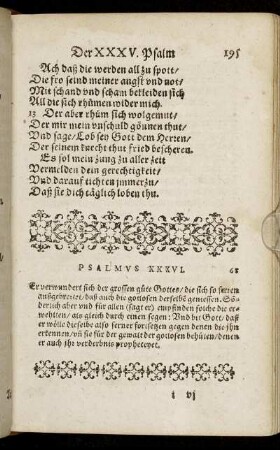 Der XXXV. Psalm 195
Ach daß die werden all zu spott/
Die fro seind meiner angst vnd not/
Mit schand vnd scham bekleiden sich
All die sich rhümen wider mich.
13 Der aber rhüm sich wolgemut/
Der mir mein vnschuld gönnen thut/
Vnd sage/Lob sey Gott dem Herren/
Der seinem knecht thut fried bescheren.
Es sol mein zung zu aller zeit
Vermelden dein gerechtigkeit/
Vnd darauf tichten jmmerzu/
Daß sie dich täglich loben thu.
PSALMVS XXXVI. 61
Er verwundert sich der grossen güte Gottes/ die sich so ferren
außgebreitet/ daß auch die gottosen derselbē geniessen. Sö⸗
derlich aber vnd für allen (sagt er) empfinden solche die er⸗
wehlten/ als gleich durch einen segen: Vnd bit Gott/ daß
er wölle dieselbe also ferner fortsetzen gegen denen die jhn
erkennen/ vn̄ sie für der gewalt der gotlosen behüten/ denen
er auch jhr verderbnis propheteyet.
i vj